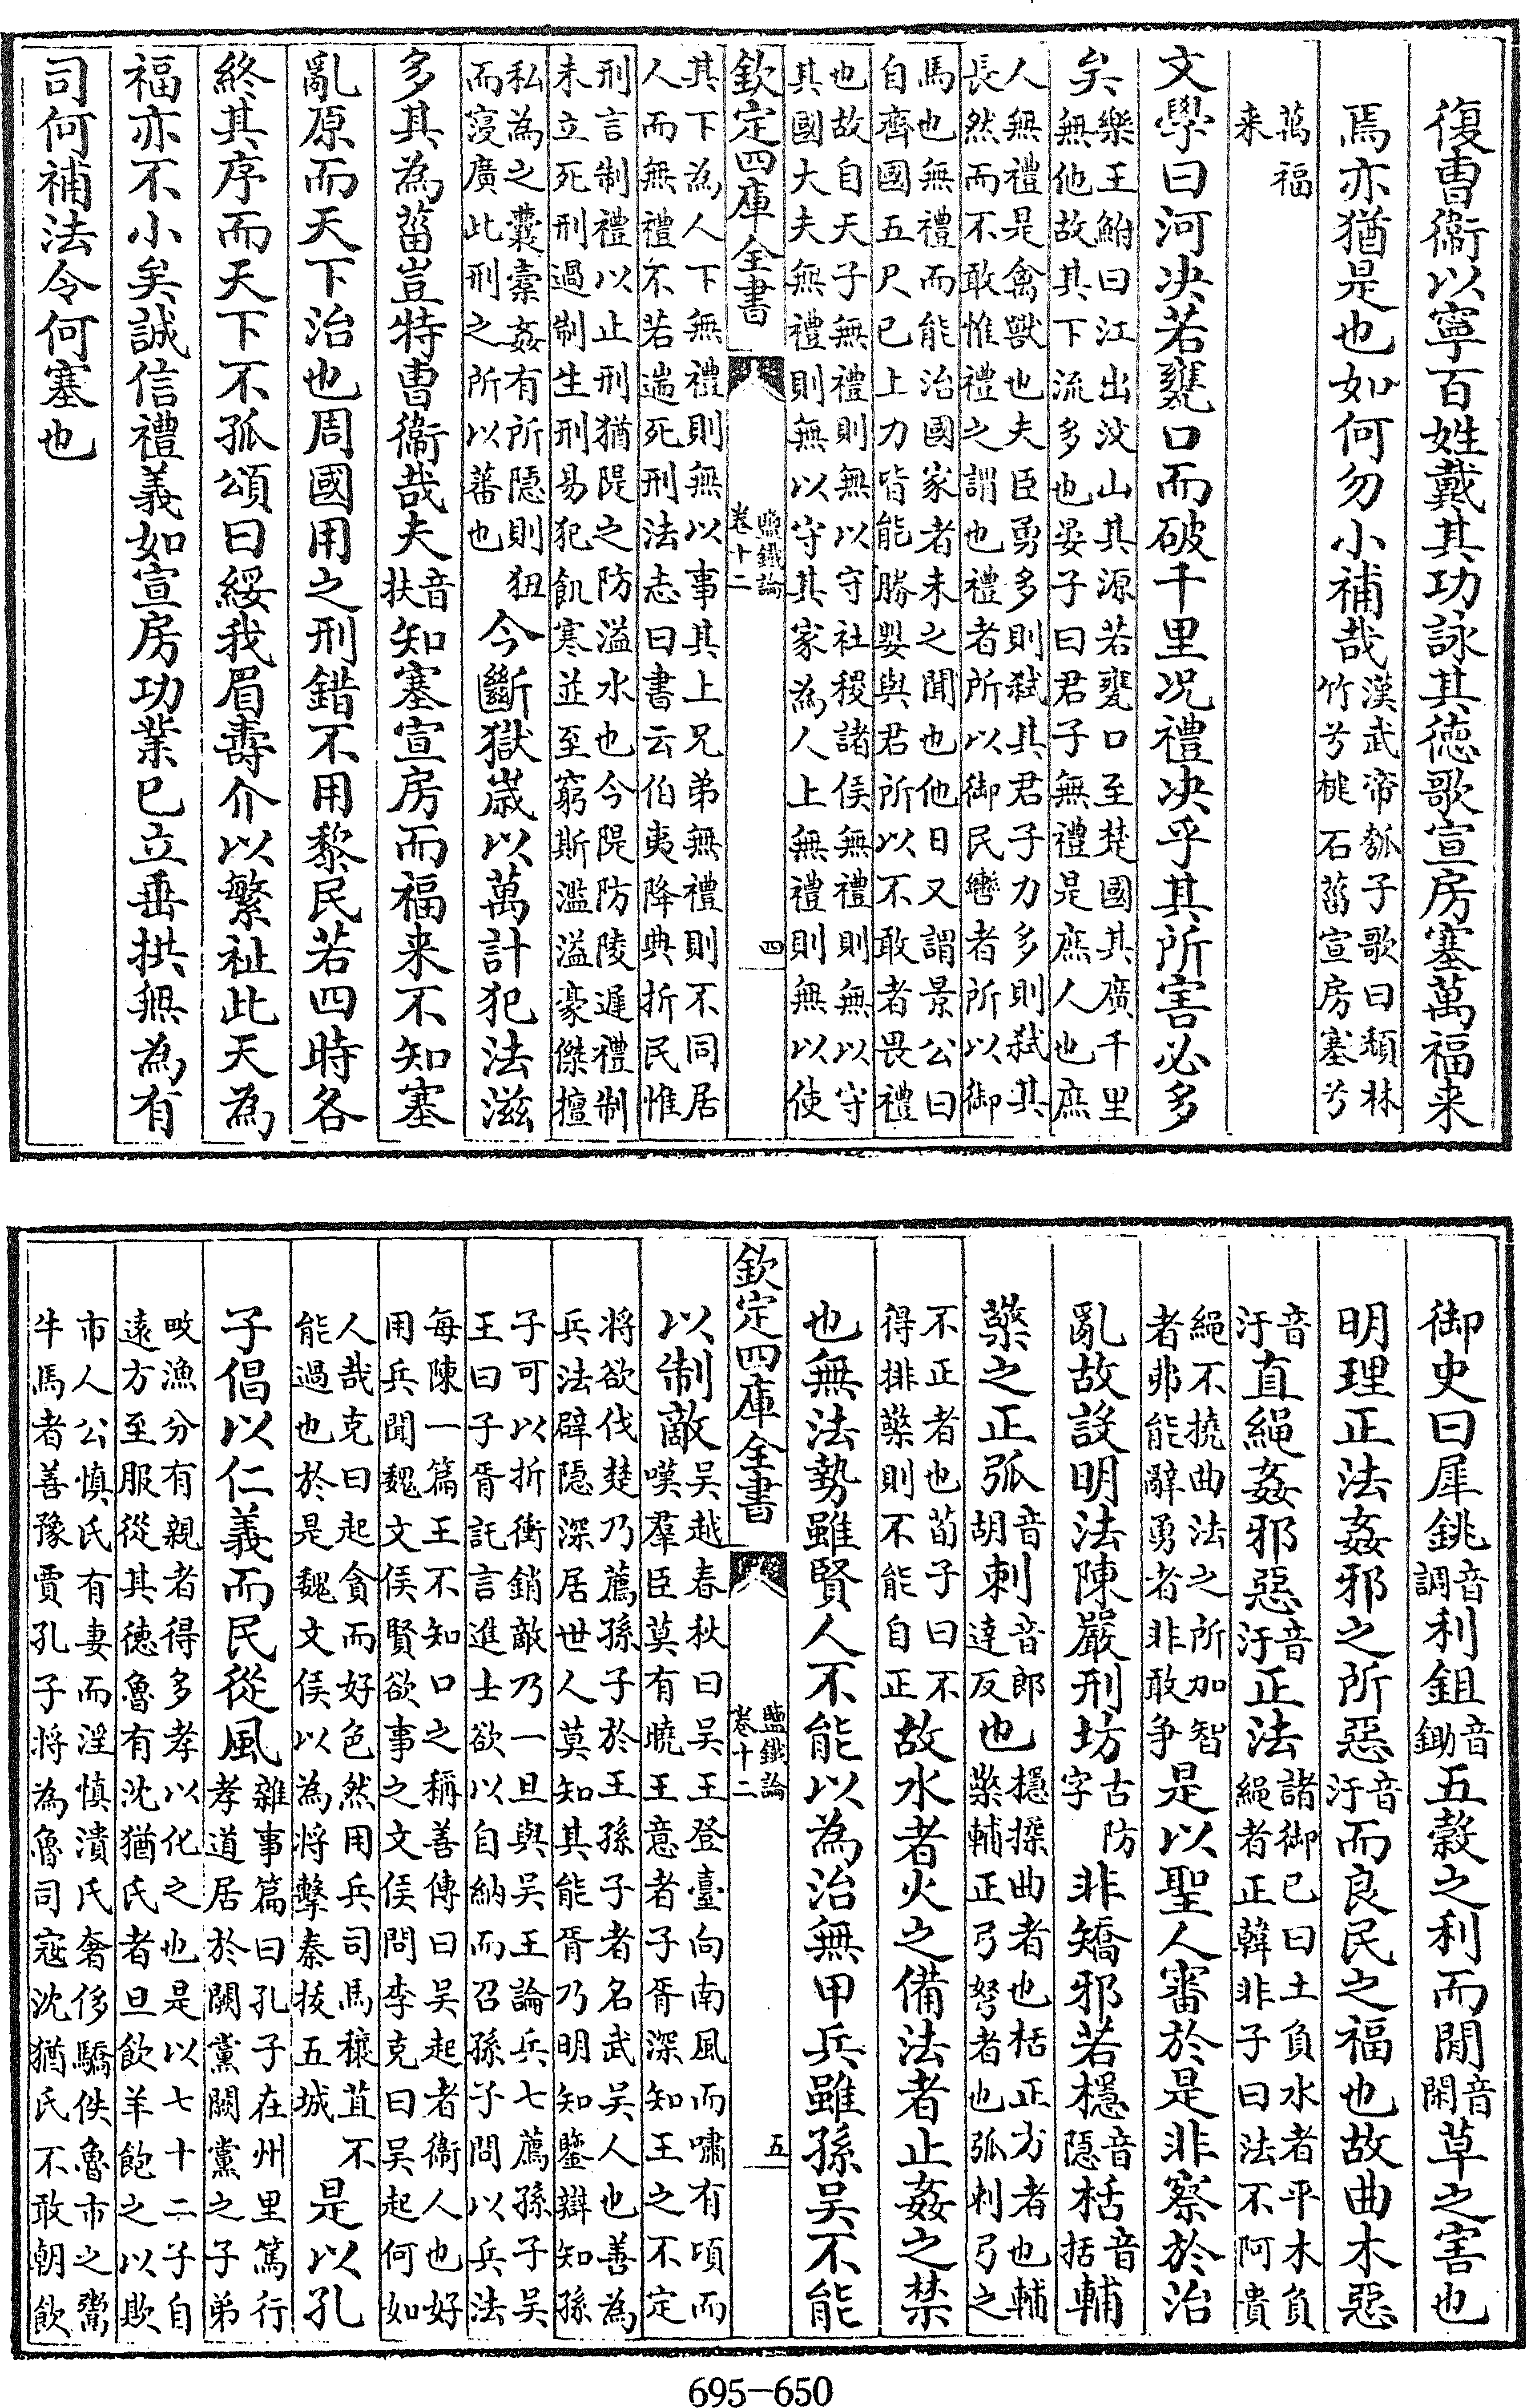 復曹衞以寧百姓戴其功詠其徳歌宣房塞萬福来
焉亦猶是也如何勿小補哉漢武帝瓠子歌曰頹林竹兮楗石菑宣房塞兮
萬福来
文學曰河決若甕口而破千里况禮决乎其所害必多
矣樂王鮒曰江出汶山其源若甕口至楚國其廣千里無他故其下流多也晏子曰君子無禮是庶人也庶
人無禮是禽獸也夫臣勇多則弑其君子力多則弑其長然而不敢惟禮之謂也禮者所以御民轡者所以御
馬也無禮而能治國家者未之聞也他日又謂景公曰自齊國五尺已上力皆能勝嬰與君所以不敢者畏禮
也故自天子無禮則無以守社稷諸侯無禮則無以守其國大夫無禮則無以守其家為人上無禮則無以使
欽定四庫全書 鹽鐵論卷十二 四
其下為人下無禮則無以事其上兄弟無禮則不同居人而無禮不若遄死刑法志曰書云伯夷降典折民惟
刑言制禮以止刑猶隄之防溢水也今隄防陵遲禮制未立死刑過制生刑易犯飢寒並至窮斯濫溢豪傑擅
私為之囊橐姦有所隱則狃而寖廣此刑之所以蕃也今斷獄嵗以萬計犯法滋
多其為菑豈特曹衞哉夫音扶知塞宣房而福来不知塞
亂原而天下治也周國用之刑錯不用黎民若四時各
終其序而天下不孤頌曰綏我眉壽介以繁祉此天為
福亦不小矣誠信禮義如宣房功業已立垂拱無為有
司何補法令何塞也
御史曰犀銚音調利鉏音鋤五穀之利而閒音閑草之害也
明理正法姦邪之所惡音汙而良民之福也故曲木惡
音汙直繩姦邪惡音汙正法諸御已曰土負水者平木負繩者正韓非子曰法不阿貴
繩不撓曲法之所加智者弗能辭勇者非敢争是以聖人審於是非察於治
亂故設明法陳嚴刑坊古防字非矯邪若檼音隱栝音括輔
檠之正弧音胡刺音郎達反也檼揉曲者也栝正方者也輔檠輔正弓弩者也弧刺弓之
不正者也荀子曰不得排檠則不能自正故水者火之備法者止姦之禁
也無法勢雖賢人不能以為治無甲兵雖孫吳不能
欽定四庫全書 鹽鐵論卷十二 五
以制敵吳越春秋曰吴王登臺向南風而嘯有頃而嘆羣臣莫有曉王意者子胥深知王之不定
将欲伐楚乃薦孫子於王孫子者名武吴人也善為兵法辟隱深居世人莫知其能胥乃明知鑒辯知孫
子可以折衝銷敵乃一旦與吴王論兵七薦孫子吴王曰子胥託言進士欲以自納而召孫子問以兵法
每陳一篇王不知口之稱善傳曰吴起者衞人也好用兵聞魏文侯賢欲事之文侯問李克曰吴起何如
人哉克曰起貪而好色然用兵司馬穰苴不能過也於是魏文侯以為将擊秦拔五城是以孔
子倡以仁義而民從風雜事篇曰孔子在州里篤行孝道居於闕黨闕黨之子弟
畋漁分有親者得多孝以化之也是以七十二子自遠方至服從其徳魯有沈猶氏者旦飲羊飽之以欺
市人公慎氏有妻而淫慎潰氏奢侈驕佚魯市之鬻牛馬者善豫賈孔子将為魯司寇沈猶氏不敢朝飲
695-650